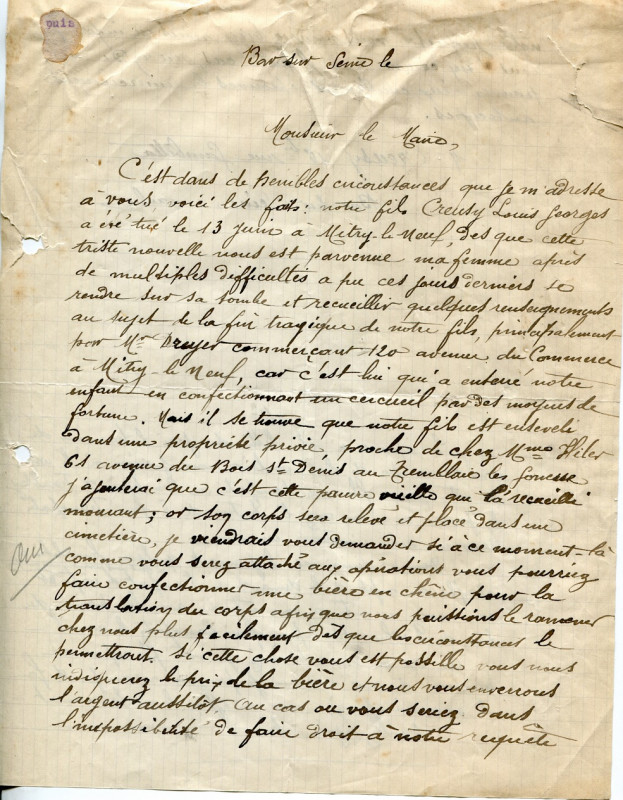 ouis
Bar sur Seine le
Monsieur le Maire,
C'est dans de penibles circonstances que je m'adresse
à vous, voici les faits: notre fils Creusy Louis Georges
a été tué le 13 juin à Mitry-le-Neuf, des que cette
triste nouvelle nous est parvenue ma femme après
de multiples difficultés a pu ces jours derniers se
rendre sur sa tombe et recueillir quelques renseignements
au sujet de la fin tragique de notre fils, principalement
par Mr Dreyer commerçant 120 avenue du Commerce
à Mitry-le Neuf, car c'est lui qui a enterré notre
enfant en confectionnant un cercueil par des moyens de
fortune. Mais il se trouve que notre fils est enseveli
dans une propriété privée, proche de chez Mme Hiler
61 avenue du Bois St Denis au Tremblaie les Gonesse
j'ajouterai que c'est cette pauvre vieille qui l'a recueilli
mourant; or son corps sera relevé et placé dans une
cimetière, je viendrais vous demander si à ce moment-là
comme vous serez attaché aux opérations vous pourriez
faire confectionner une bière en chêne pour la
translation du corps afin que nous puissions le ramener
chez nous plus facilement dès que les circonstances le
permettront. si cette chose vous est possible vous nous
indiquerez le prix de la bière et nous vous enverrons
l'argent aussitôt. Au cas ou vous seriez dans
l'impossibilité de faire droit à notre requête
Oui